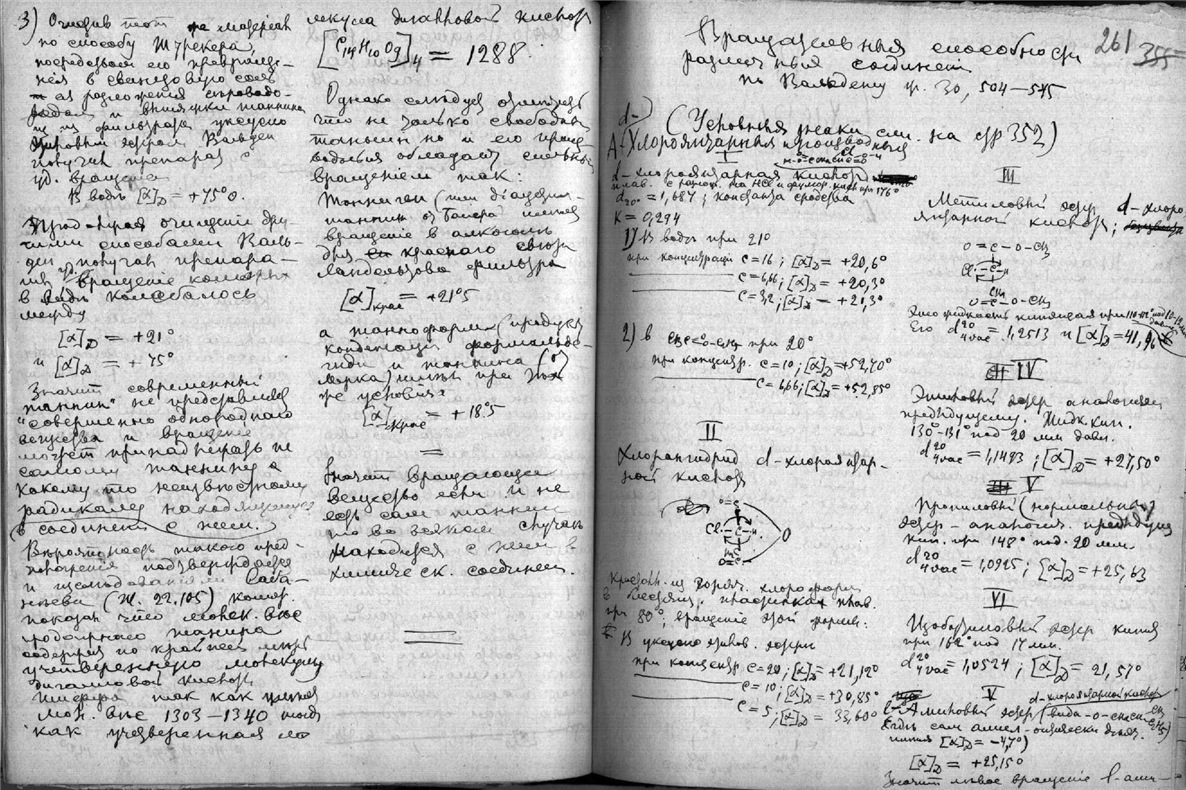 3) Очистив этот же материал
по способу Штрекера,
посредством его превраще-
ния в свинцовую соль
ея разложения сероводо-
родом и вытяжки таннина
из фильтрата уксусно
этиловым эфиром Вальден
получил препарат с
уд. вращение
В воде [α]D = +75°0.
очищения дру-
гими способами Валь-
ден получал препара-
ты вращение которых
в воде колебалось
между
[α]D = +21°
и [α]D = +75°
Значит современный
"таннин" не представляет
совершенно однороднаго
вещества и вращение
может принадлежать не
самому таннину а
какому то неизвестному
радикалу находящемуся
в соединении с ним.
Вероятность такого пред-
положения подтверждается
и изследованиями Саба-
неева (Ж. 22.105) который
показал что молек. вес
продажного танина
содержит по крайней мере
учетверенную молекулу
дигалловой кислоты
так как
мол. вес 1303—1340 тогда
как учетверенная мо
лекула дигалловой кислоты
[C14H10O9]4 = 1288.
Однако следует отметить
что не только свободный
таннин но и его произ
водныя обладают сильным
вращением так:
Танниген (или диацетил-
таннин от Байера имеет
вращение в алкоголе
для красного света
Ландольтова фильтра
[α]крас = +21°5
а танноформ (продукт
конденсации формальде-
гида и таннина
Мерка) имел при тех
же условиях
[α]крас = +18°5
Значит вращающее
вещество если и не
есть сам таннин
то во всяком случае
находится с ним в
химическ. соединении.
261 355
Вращательныя способности
различных соединений
по Вальдену ж. 30, 504—545
(Условныя знаки см. на стр 352)
d-
А-Хлороянтарныя производныя
I
d-хлороянтарная кислота
плав. с разлож. 176°
d20° = 1,687; константа сродства
K = 0,294
1) В воде при 21°
при концентрации c = 16; [α]D = +20,6°
c = 6,66; [α]D = +20,3°
c = 3,2; [α]D = +21,3°
2) в при 20°
при концентр. c = 10; [α]D = +52,70°
c = 6,66; [α]D = +52,85°
II
Хлорангидрид d-хлороянтар-
ной кислоты
Кристал. из горяч. хлороформа
в плав.
при 80°, вращение этой формы:
В уксусно этилов. эфире
при концентр. c = 20; [α]D = +21,12°
c = 10; [α]D = +30,85°
c = 5; [α]D = 33,60°
III
Метиловый эфир d-хлоро
янтарной кислоты;
O = C – O – CH3
O = C – O – CH3
Это жидкость кипящая при
Его d20 4 vac = 1,2513 и [α]D = 41,96
IV
Этиловый эфир аналогичен
предыдущему. Жидк. кип.
130°–131° под 20 мм давл.
d20 4 vac = 1,1493; [α]D = +27,50°
V
Пропиловый (нормальный)
эфир – аналогич. предыдущ
кип. при 148° под. 20 мм.
d20 4 vac = 1,0925; [α]D = +25,63
VI
Изобутиловый эфир кипит
при 162° под 17 мм.
d20 4 vac = 1,0524; [α]D = 21,57°
V
d-хлороянтарной кислоты
l-Амиловый эфир (вида
сам амил-оптически деят.
имел [α]D = –4,7°)
[α]D = +25,15°
Значит левое вращение l-амил-